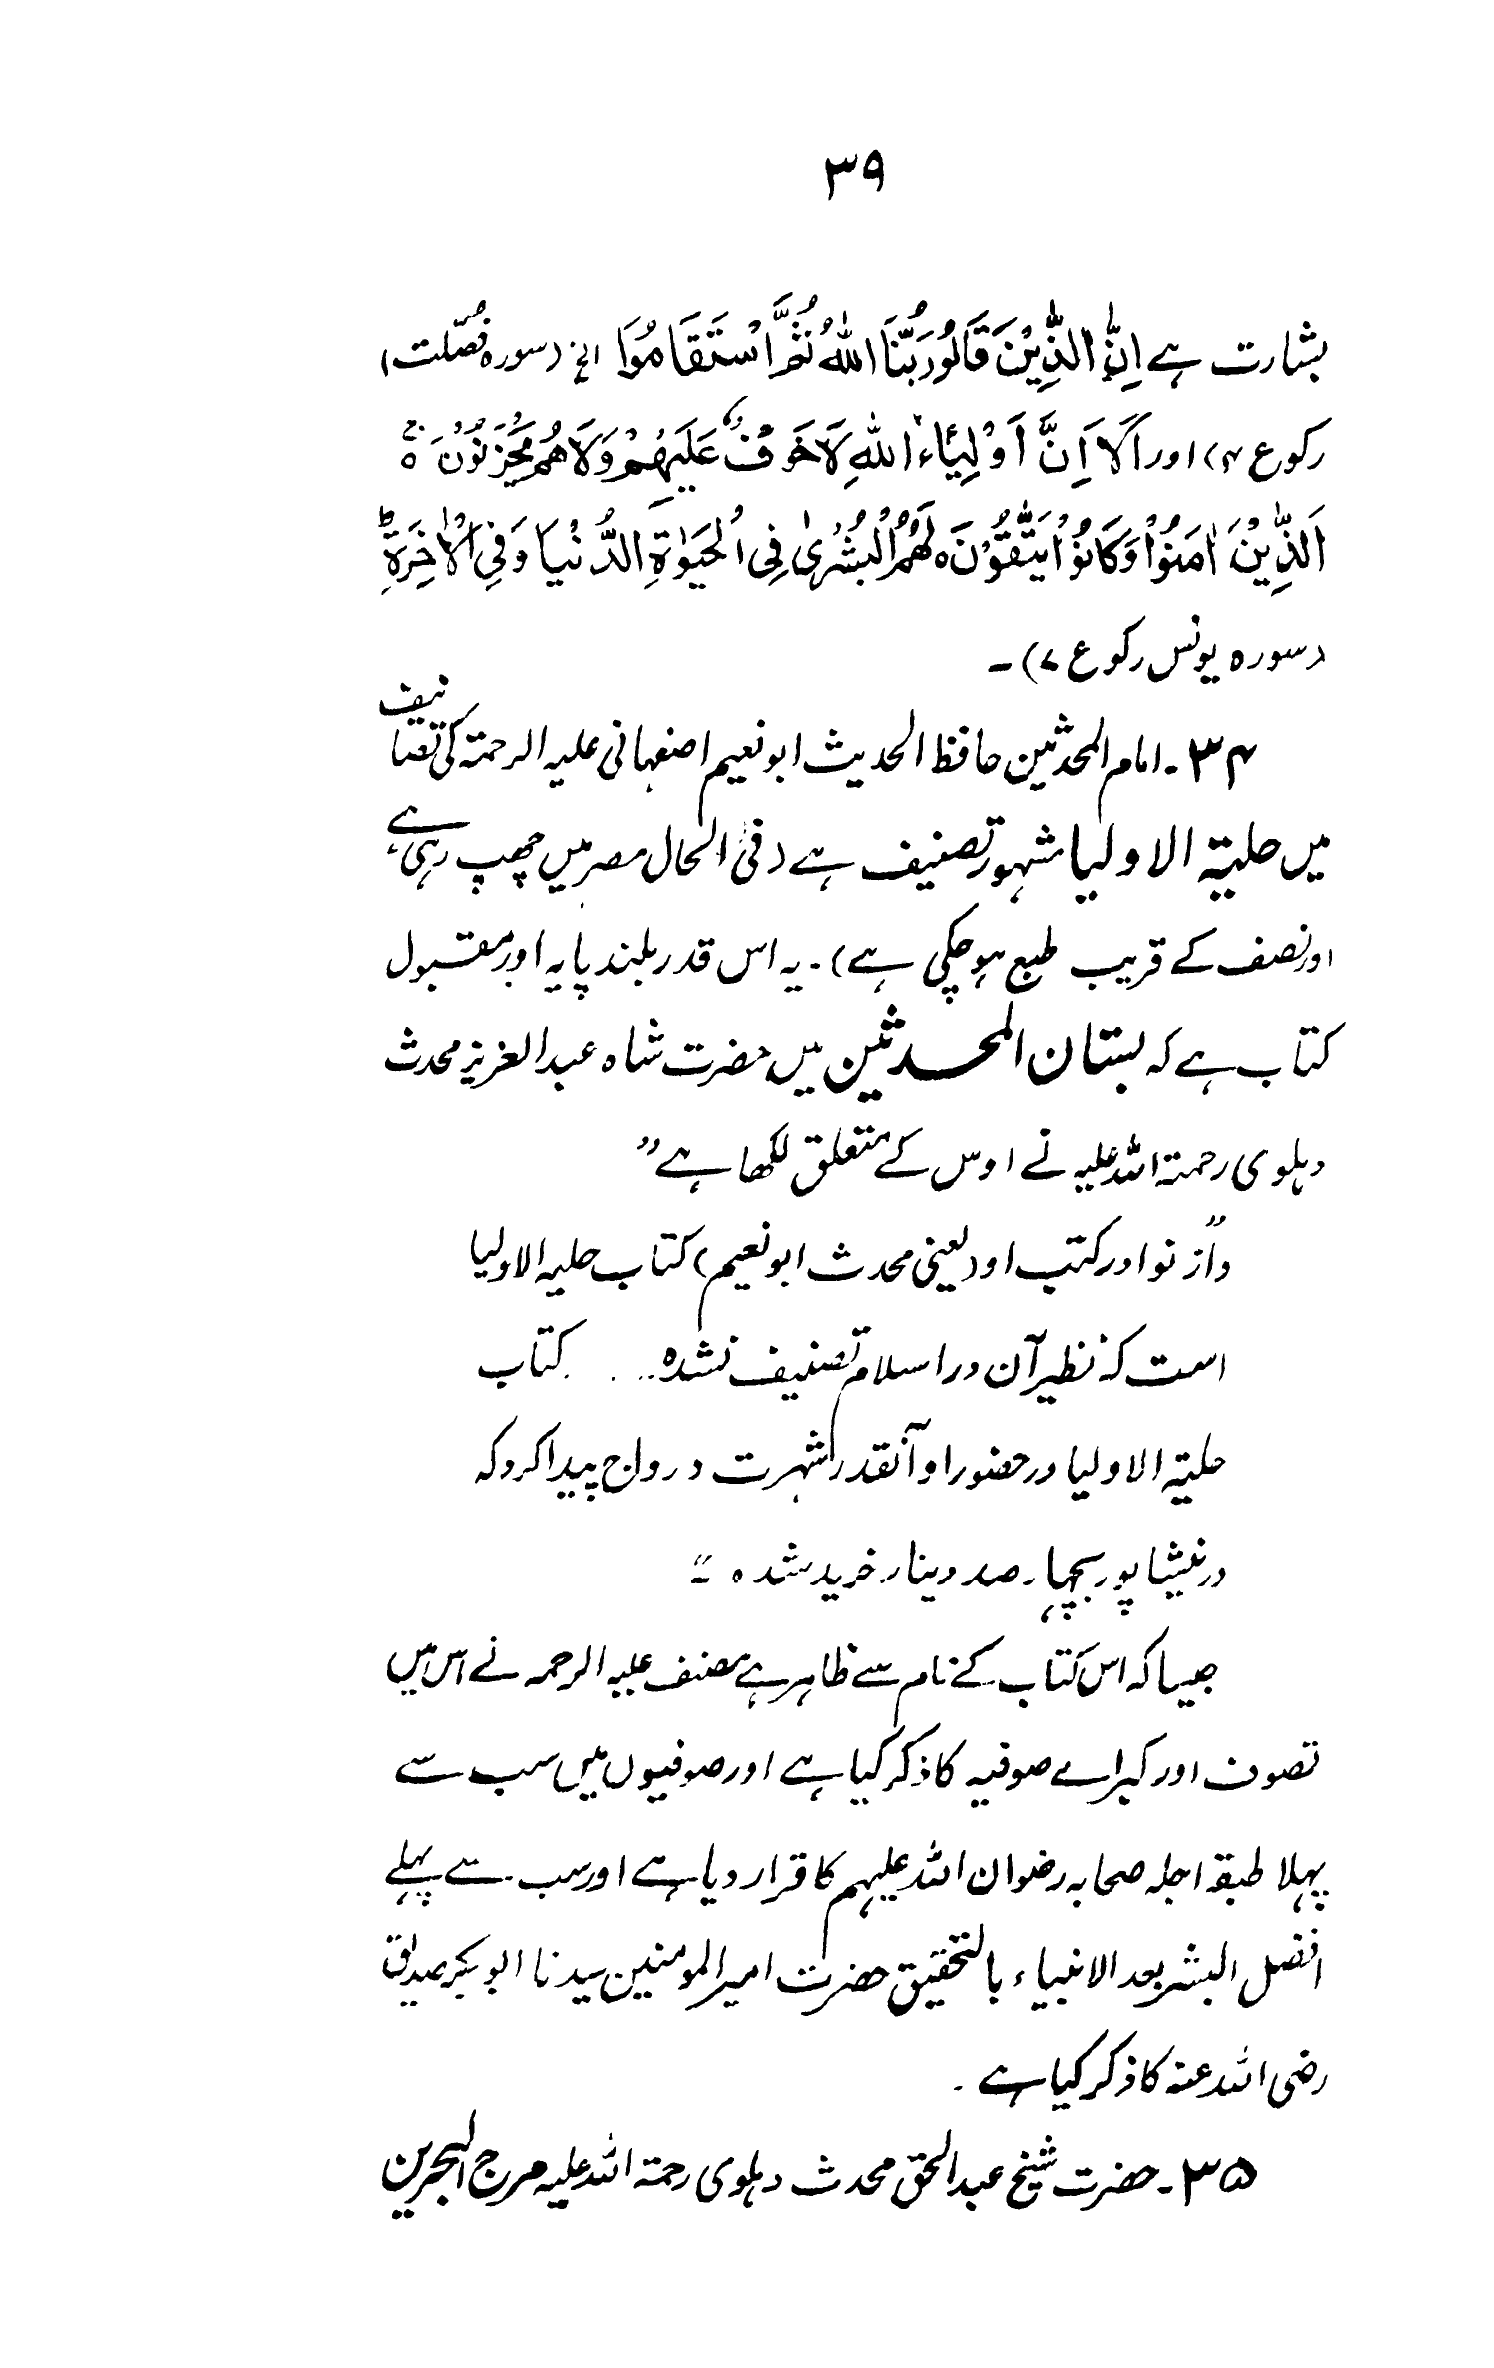 ۳۹
بشارت ہے اِنَّ الَّذِیْنَ قَالُوْا رَبُّنَا اللّٰهُ ثُمَّ اسْتَقَامُوْا الخ (سورہ فُصّلت)
رکوع ۴) اور اَلَا اِنَّ اَوْلِیَآءَ اللّٰهِ لَا خَوْفٌ عَلَیْهِمْ وَلَا هُمْ یَحْزَنُوْنَ ۚ ہ
اَلَّذِیْنَ اٰمَنُوْا وَكَانُوْا یَتَّقُوْنَ ہ لَهُمُ الْبُشْرٰی فِی الْحَیٰوةِ الدُّنْیَا وَفِی الْاٰخِرَةِ ؕ
(سورہ یونس رکوع ۷)۔
۳۴۔ امام المحدثین حافظ الحدیث ابو نعیم اصفہانی علیہ الرحمۃ کی تصانیف
میں حلیۃ الاولیا مشہور تصنیف ہے (فی الحال مصر میں چھپ رہی ہے
اور نصف کے قریب طبع ہو چکی ہے)۔ یہ اس قدر بلند پایہ اور مقبول
کتاب ہے کہ بستان المحدثین میں حضرت شاہ عبد العزیز محدث
دہلوی رحمۃ اللہ علیہ نے اوس کے متعلق لکھا ہے"
"و از نوادر کتب او (یعنی محدث ابو نعیم) کتاب حلیہ الاولیا
است کہ نظیر آن در اسلام تصنیف نشدہ.... کتاب
حلیۃ الاولیا در حضور او آنقدر شہرت و رواج پیدا کرد کہ
در نیشاپور بچہار صد دینار خرید شدہ ۔"
جیسا کہ اس کتاب کے نام سے ظاہر ہے مصنف علیہ الرحمہ نے اس میں
تصوف اور کبراے صوفیہ کا ذکر کیا ہے اور صوفیوں میں سب سے
پہلا طبقہ اجلہ صحابہ رضوان اللہ علیہم کا قرار دیا ہے اور سب سے پہلے
افضل البشر بعد الانبیاء بالتحقیق حضرت امیر المومنین سیدنا ابو بکر صدیق
رضی اللہ عنہ کا ذکر کیا ہے ۔
۳۵۔ حضرت شیخ عبد الحق محدث دہلوی رحمۃ اللہ علیہ مرج البحرین